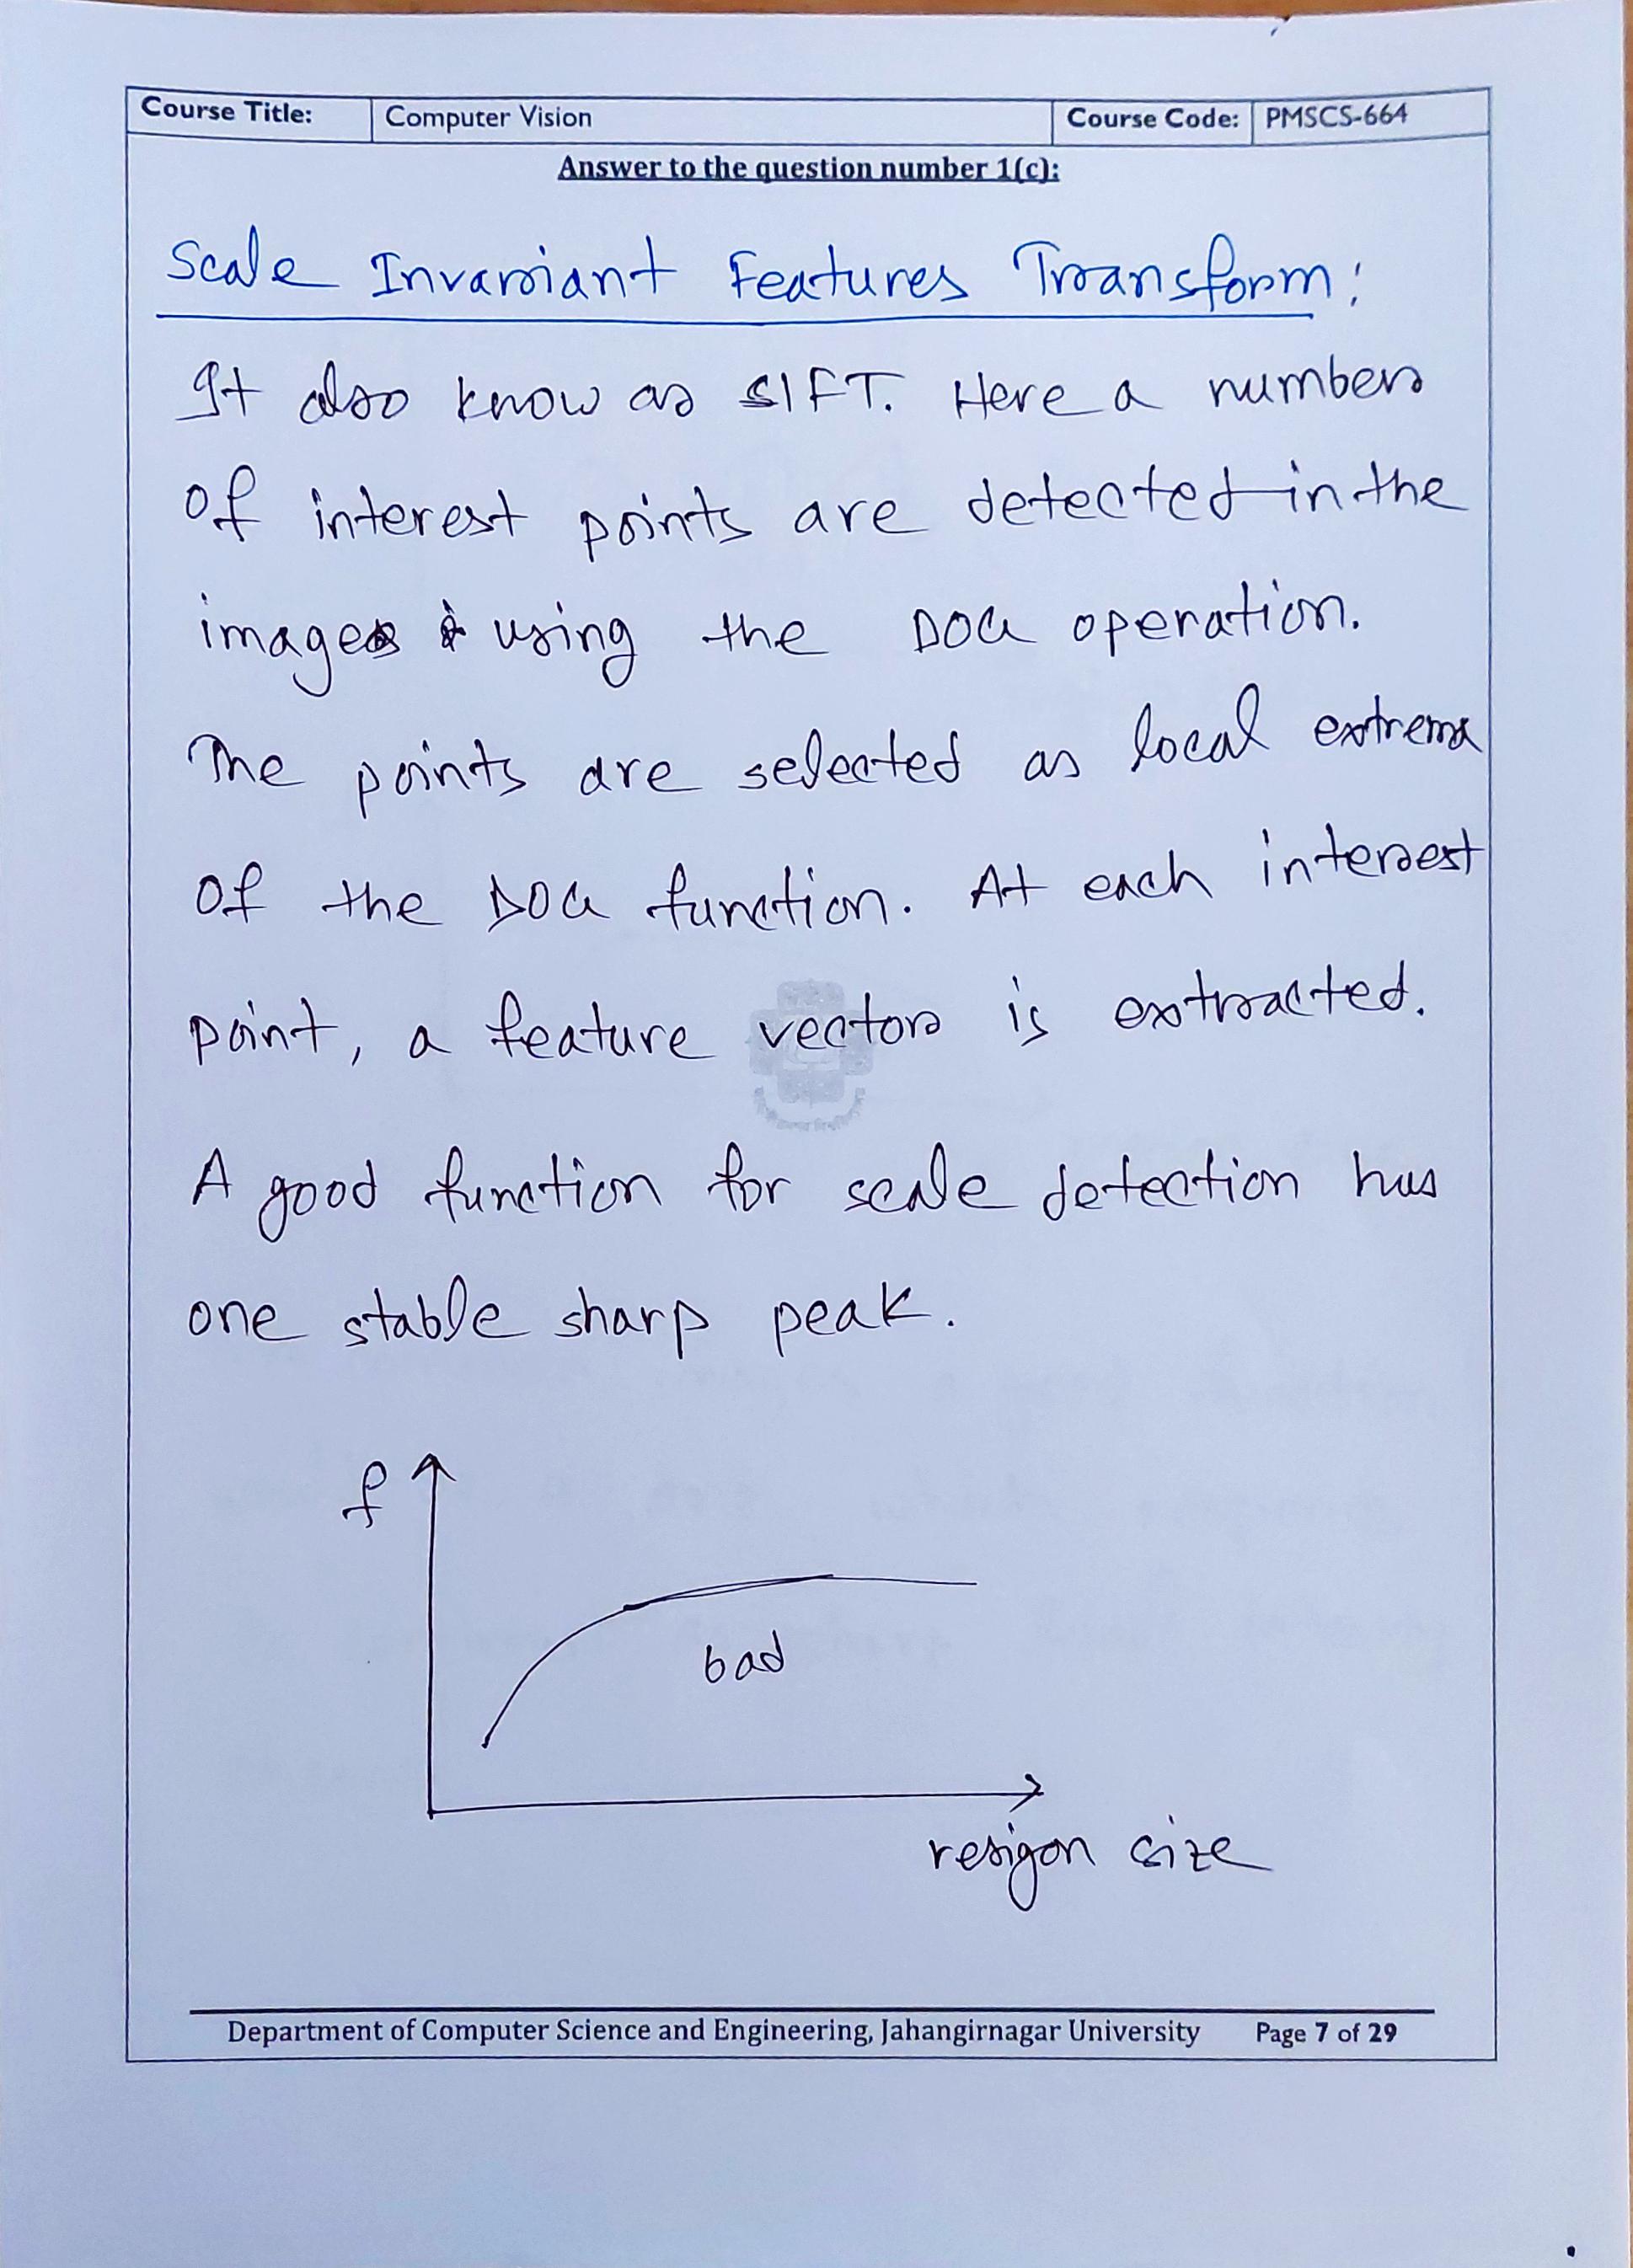 Course Title: Computer Vision Course Code: PMSCS-664
Answer to the question number 1(c):
Scale Invariant Features Transform:
It also know as SIFT. Here a number
of interest points are detected in the
images using the DOG operation.
The points are selected as local extrema
of the DOG function. At each interest
point, a feature vector is extracted.
A good function for scale detection has
one stable sharp peak.
f
bad
resigon size
Department of Computer Science and Engineering, Jahangirnagar University Page 7 of 29